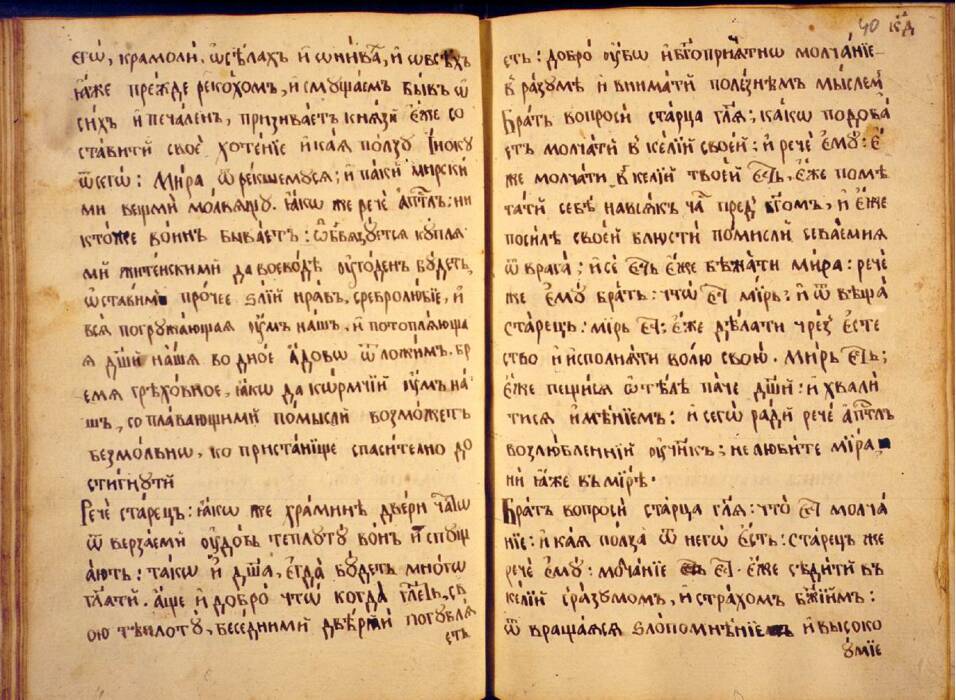 єгѡ̀, крамоли, ѡсѣлахъ и҆ ѡ҆ни́вахъ, и҆ ѡ҆всѣ́хъ
ꙗ҆́же прежде реко́хомъ, и҆ смꙋща́емъ бы́въ ѿ
си́хъ и҆ печа́ленъ, призива́етъ кнѧ́зѧ є҆́же со
ста́вити своѐ хотѣ́нїе и҆ ка́ѧ по́лзꙋ и҆́нокꙋ
ѿсегѡ̀: Ми́ра ѿре́кшемꙋсѧ; и҆ па́ки мирски
ми вещмѝ мо́лвѧщꙋ. ꙗ҆́кѡ же речѐ а҆пⷭ҇тлъ: ни
кто́же во́инъ быва́етъ: ѡ҆бвѧзꙋется кꙋплѧ
мѝ жите́нскими да воево́дѣ ᲂу҆го́денъ бꙋ́детъ,
ѡ҆ста́вимъ про́чее ѕлі́й нра́въ, сребролю́бїе, и҆
всѧ̀ погрꙋжа́ющаѧ ᲂу҆́мъ на́шъ, и҆ потоплѧ́юща
ѧ дш҃и на́шѧ во дно̀ а҆́дово ѿло́жимъ, бр
емѧ грѣхо́вное, ꙗ҆́кѡ да кѡ́рмчїй ᲂу҆́мъ на́
шъ, со пла́вающими по́мысли возмо́жетъ
безмо́лвнѡ, ко приста́нище спаси́телно до
сти́гнꙋти
Речѐ ста́рецъ: ꙗ҆́кѡ же хра́минѣ две́ри ча́стѡ
ѿверза́еми ᲂу҆до́бь теплотꙋ̀ во́нъ и҆спꙋщ
а́ютъ: та́кѡ и҆ дш҃а̀, є҆гда̀ бꙋ́детъ мно́гѡ
гл҃ати. а҆́ще и҆ добро̀ что̀ когда̀ гл҃етъ, св
ою̀ теплотꙋ̀, бесѣ́дними две́рми погꙋблѧ́
етъ
40 к҃д
єсть: добро̀ ᲂу҆́бѡ и҆ бг҃опрїѧ́тнѡ молча́нїе
в̾ ра́зꙋмѣ и҆ внима́ти поле́знѣмъ мы́слемъ
Бра́тъ вопросѝ ста́рца гл҃ѧ; ка́кѡ подоба́
етъ молча́ти в̾ ке́лїй свое́й; и҆ речѐ є҆мꙋ̀: є҆́
же молча́ти в̾ ке́лїй твое́й є҆́сть, є҆́же помѣ
та́ти себѐ на всѧ́къ ча́съ пред̾ бг҃омъ, и҆ є҆́же
поси́лѣ свое́й блюстѝ по́мисли сѣва́емиѧ
ѿ врага̀; и҆ сѐ є҆́сть є҆́же бѣжа́ти ми́ра: рече́
же є҆мꙋ̀ бра́тъ: что̀ є҆́сть мі́ръ; и҆ ѿвѣща̀
ста́рецъ: мі́ръ є҆́сть: є҆́же дѣ́лати чрез̾ є҆сте
ство̀ и҆ и҆сполнѧ́ти во́лю свою̀. Ми́ръ є҆́сть;
є҆́же пещи́сѧ ѡ҆ тѣ́лѣ па́че дш҃и: и҆ хвали́
тисѧ и҆мѣ́нїемъ: и҆ сегѡ̀ ра́ди речѐ а҆пⷭ҇тлъ
возлю́бленнїй ᲂу҆чн҃къ; не люби́те ми́ра,
ни ꙗ҆́же въ мі́рѣ.
Бра́тъ вопросѝ ста́рца гл҃ѧ: что̀ є҆́сть молча́
нїе: и҆ ка́ѧ по́лза ѿ негѡ̀ є҆́сть: ста́рецъ же
речѐ є҆мꙋ̀: молча́нїе є҆́сть. є҆́же сѣди́ти въ
ке́лїй сра́зꙋмомъ, и҆ стра́хомъ бж҃їимъ:
ѿвраща́ѧсѧ ѕлопомнѣ́нїе и҆ высоко
ꙋ́мїе